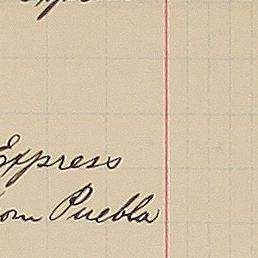 Express
from Puebla